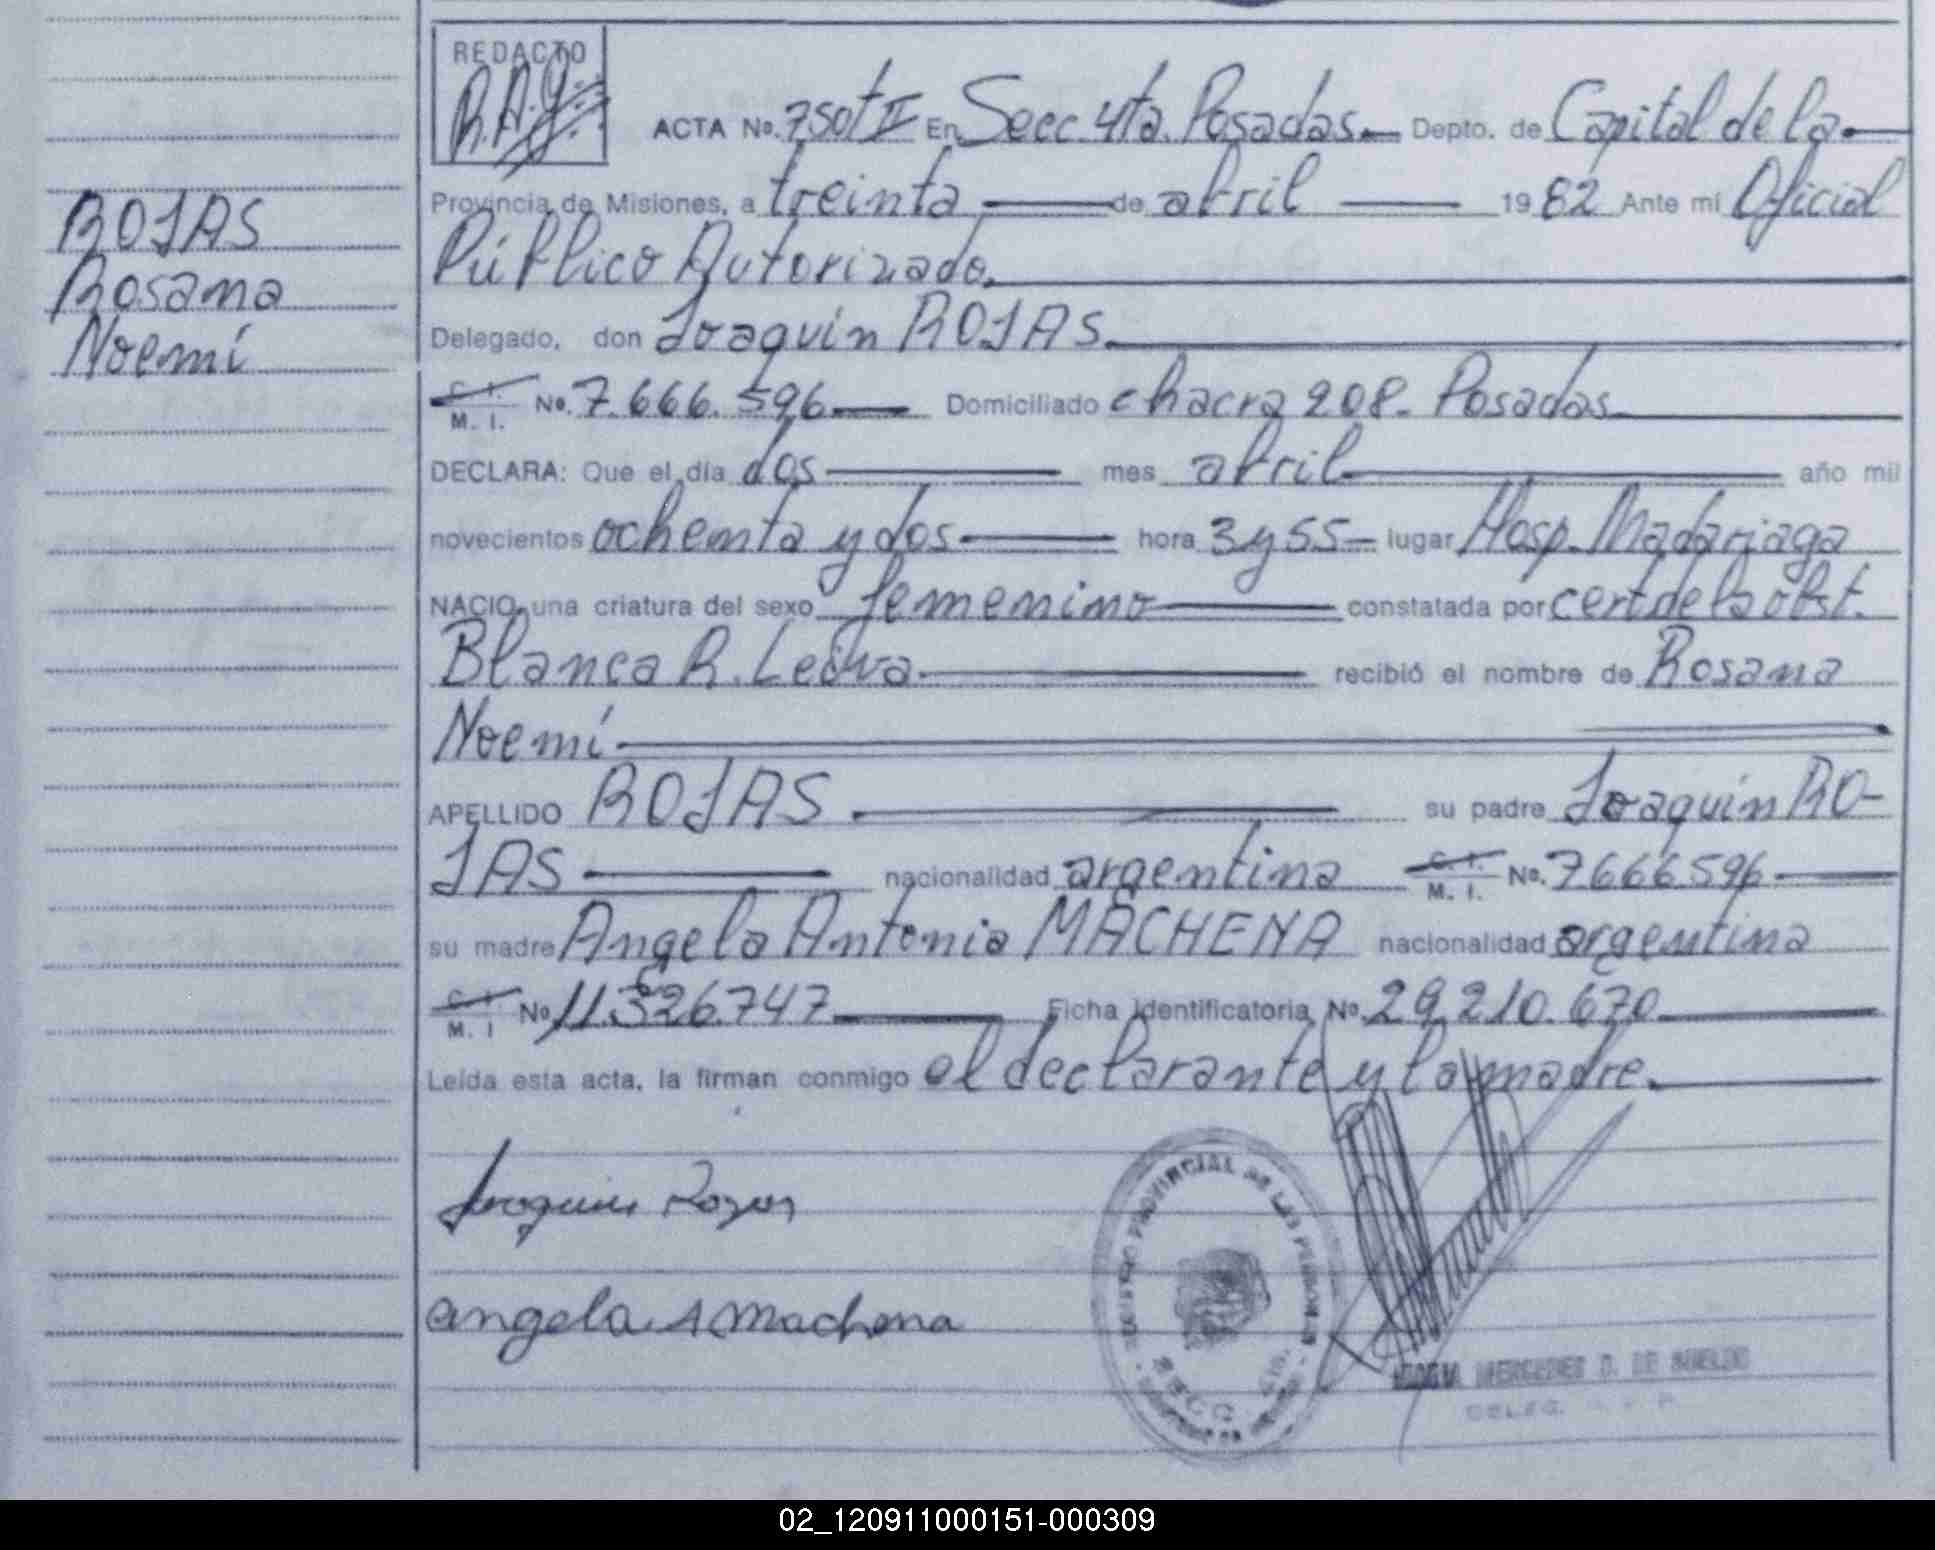 REDACTO
R.A.G.
ACTA No. 750 t II En Secc. 4ta. Posadas. Depto. de Capital de la
Provincia de Misiones, a treinta de abril 1982 Ante mí Oficial
Público Autorizado.
Delegado, don Joaquin ROJAS.
C. I. M. I. No. 7.666.596 Domiciliado chacra 208. Posadas
DECLARA: Que el día dos mes abril año mil
novecientos ochenta y dos hora 3 y 55 lugar Hosp. Madariaga
NACIO una criatura del sexo femenino constatada por cert de la obst.
Blanca R. Leiva recibió el nombre de Rosana
Noemí
APELLIDO ROJAS su padre Joaquín RO-
JAS nacionalidad argentina C. I. M. I. No. 7666596
su madre Angela Antonia MACHENA nacionalidad argentina
C. I. M. I No. 11.326.747 Ficha Identificatoria No. 29.210.670
Leída esta acta, la firman conmigo el declarante y la madre.
ROJAS
Rosana
Noemí
Joaquin Rojas
angela A Machena
REGISTRO PROVINCIAL DE LAS PERSONAS
MERCEDES D. DE
DELEG.
02_120911000151-000309